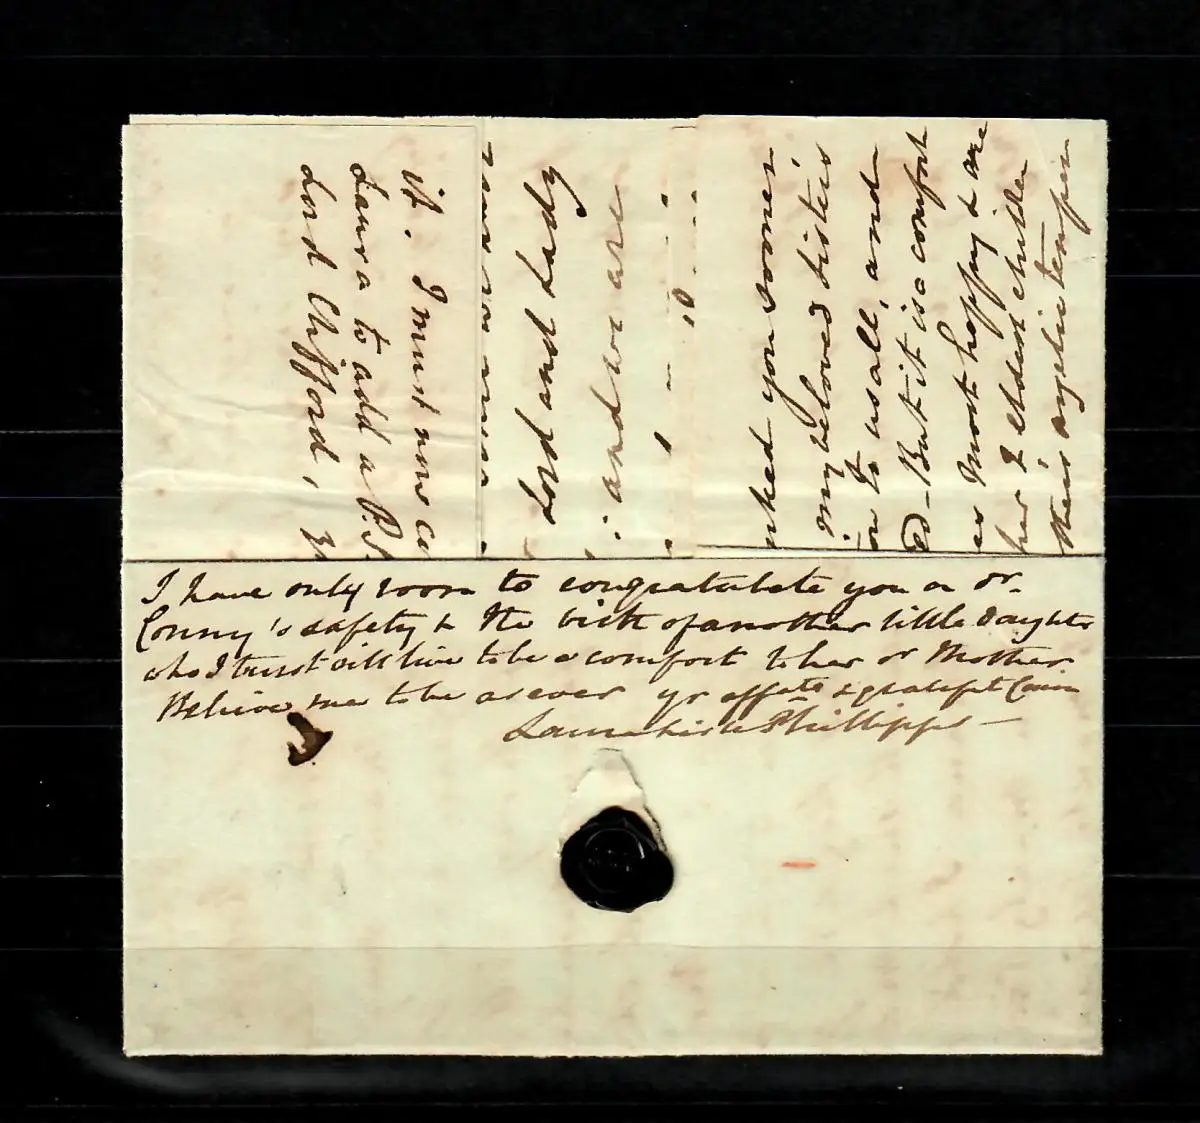 it. I must now
Laura to add a P.S
Lord Clifford,
Lord and Lady
and we are
you sooner
my beloved sister's
to us all, and
But it is a comfort
most happy & are
her 2 eldest childn
their angelic temper
I have only room to congratulate you on dr.
Conny's safety & the birth of another little daughter
who I trust will live to be a comfort to her dr Mother
Believe me to be as ever yr affate & grateful
Laura Phillipps